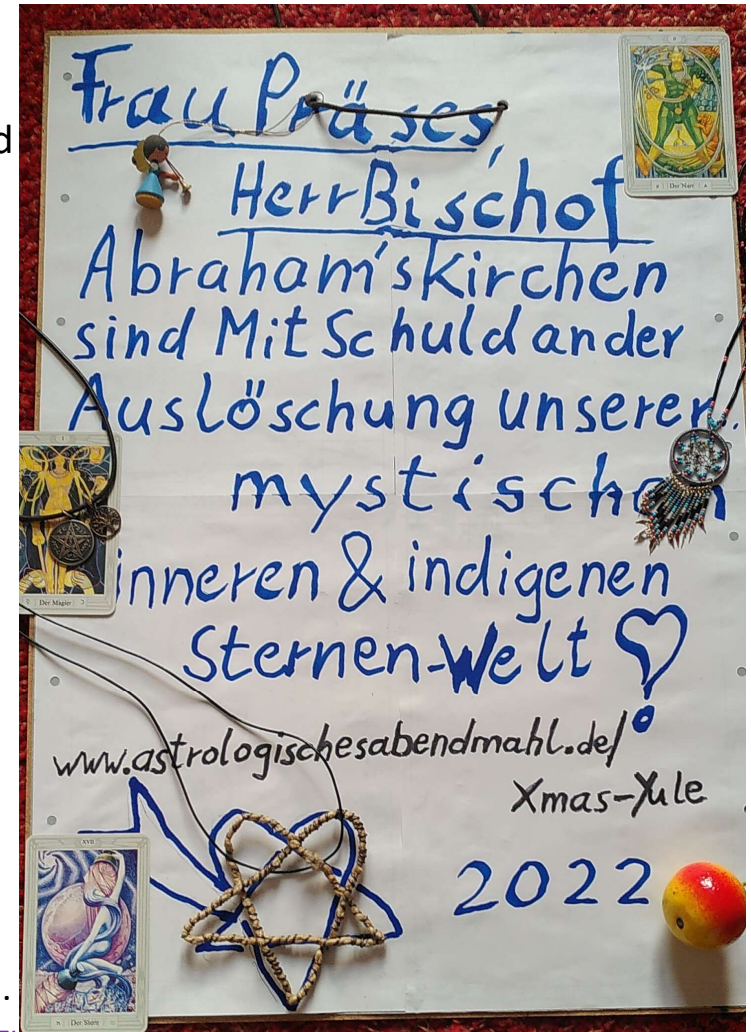 d
Frau Präses,
Herr Bischof
Abraham'skirchen
sind MitSchuld an der
Auslöschung unserer
mystischen
inneren & indigenen
Sternen-Welt
www.astrologischesabendmahl.de/
Xmas-Yule
2022
0
Der Narr
I
Der Magier
XVII
Der Stern
.